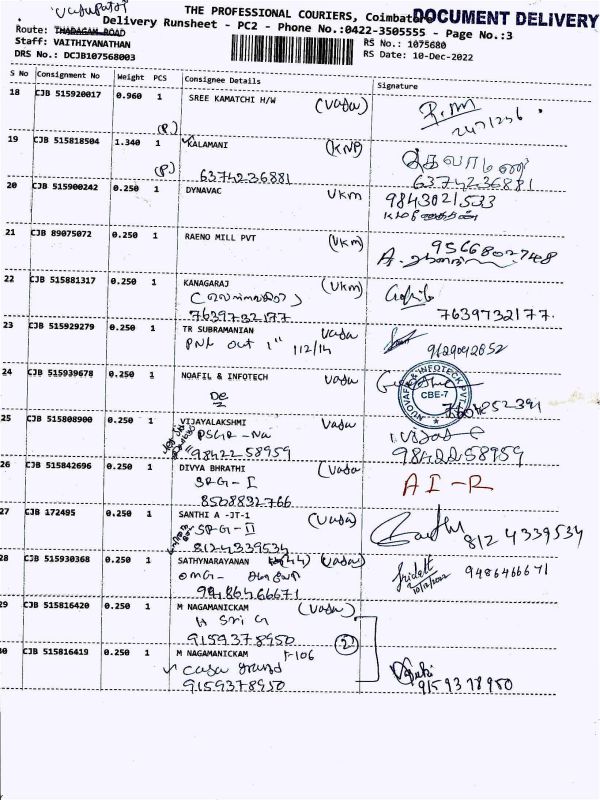 THE PROFESSIONAL COURIERS, Coimbatore
DOCUMENT DELIVERY
Delivery Runsheet - PC2 - Phone No.:0422-3505555 - Page No.:3
Route: THADAGAM ROAD
Staff: VAITHIYANATHAN
RS No.: 1075680
DRS No.: DCJB107568003
RS Date: 10-Dec-2022
S No Consignment No Weight PCS Consignee Details Signature
18 CJB 515920017 0.960 1 SREE KAMATCHI H/W (Vada)
(P)
19 CJB 515818504 1.340 1 KALAMANI (KNP)
(P) 6374236881 6374236881
20 CJB 515900242 0.250 1 DYNAVAC VKm 9843021533
21 CJB 89075072 0.250 1 RAENO MILL PVT (VKm) 9566802748
22 CJB 515881317 0.250 1 KANAGARAJ (VKm)
7639732177 7639732177
23 CJB 515929279 0.250 1 TR SUBRAMANIAN Vada
PNK out 1" 112/14 9629092652
24 CJB 515939678 0.250 1 NOAFIL & INFOTECH Vada
CBE-7
25 CJB 515808900 0.250 1 VIJAYALAKSHMI Vada
98422 58959 98422 58959
26 CJB 515842696 0.250 1 DIVYA BHRATHI (Vada)
SRG - I AI-R
8508832766
27 CJB 172495 0.250 1 SANTHI A -JT-1 (Vada)
SRG - II
8124339534 8124339534
28 CJB 515930368 0.250 1 SATHYNARAYANAN (44) (Vada)
OMG- 10/12/2022 9486466671
9486466671
29 CJB 515816420 0.250 1 M NAGAMANICKAM (Vada)
H Sri G
9159378950 (2)
30 CJB 515816419 0.250 1 M NAGAMANICKAM F-106
Casa grand
9159378950 9159378950